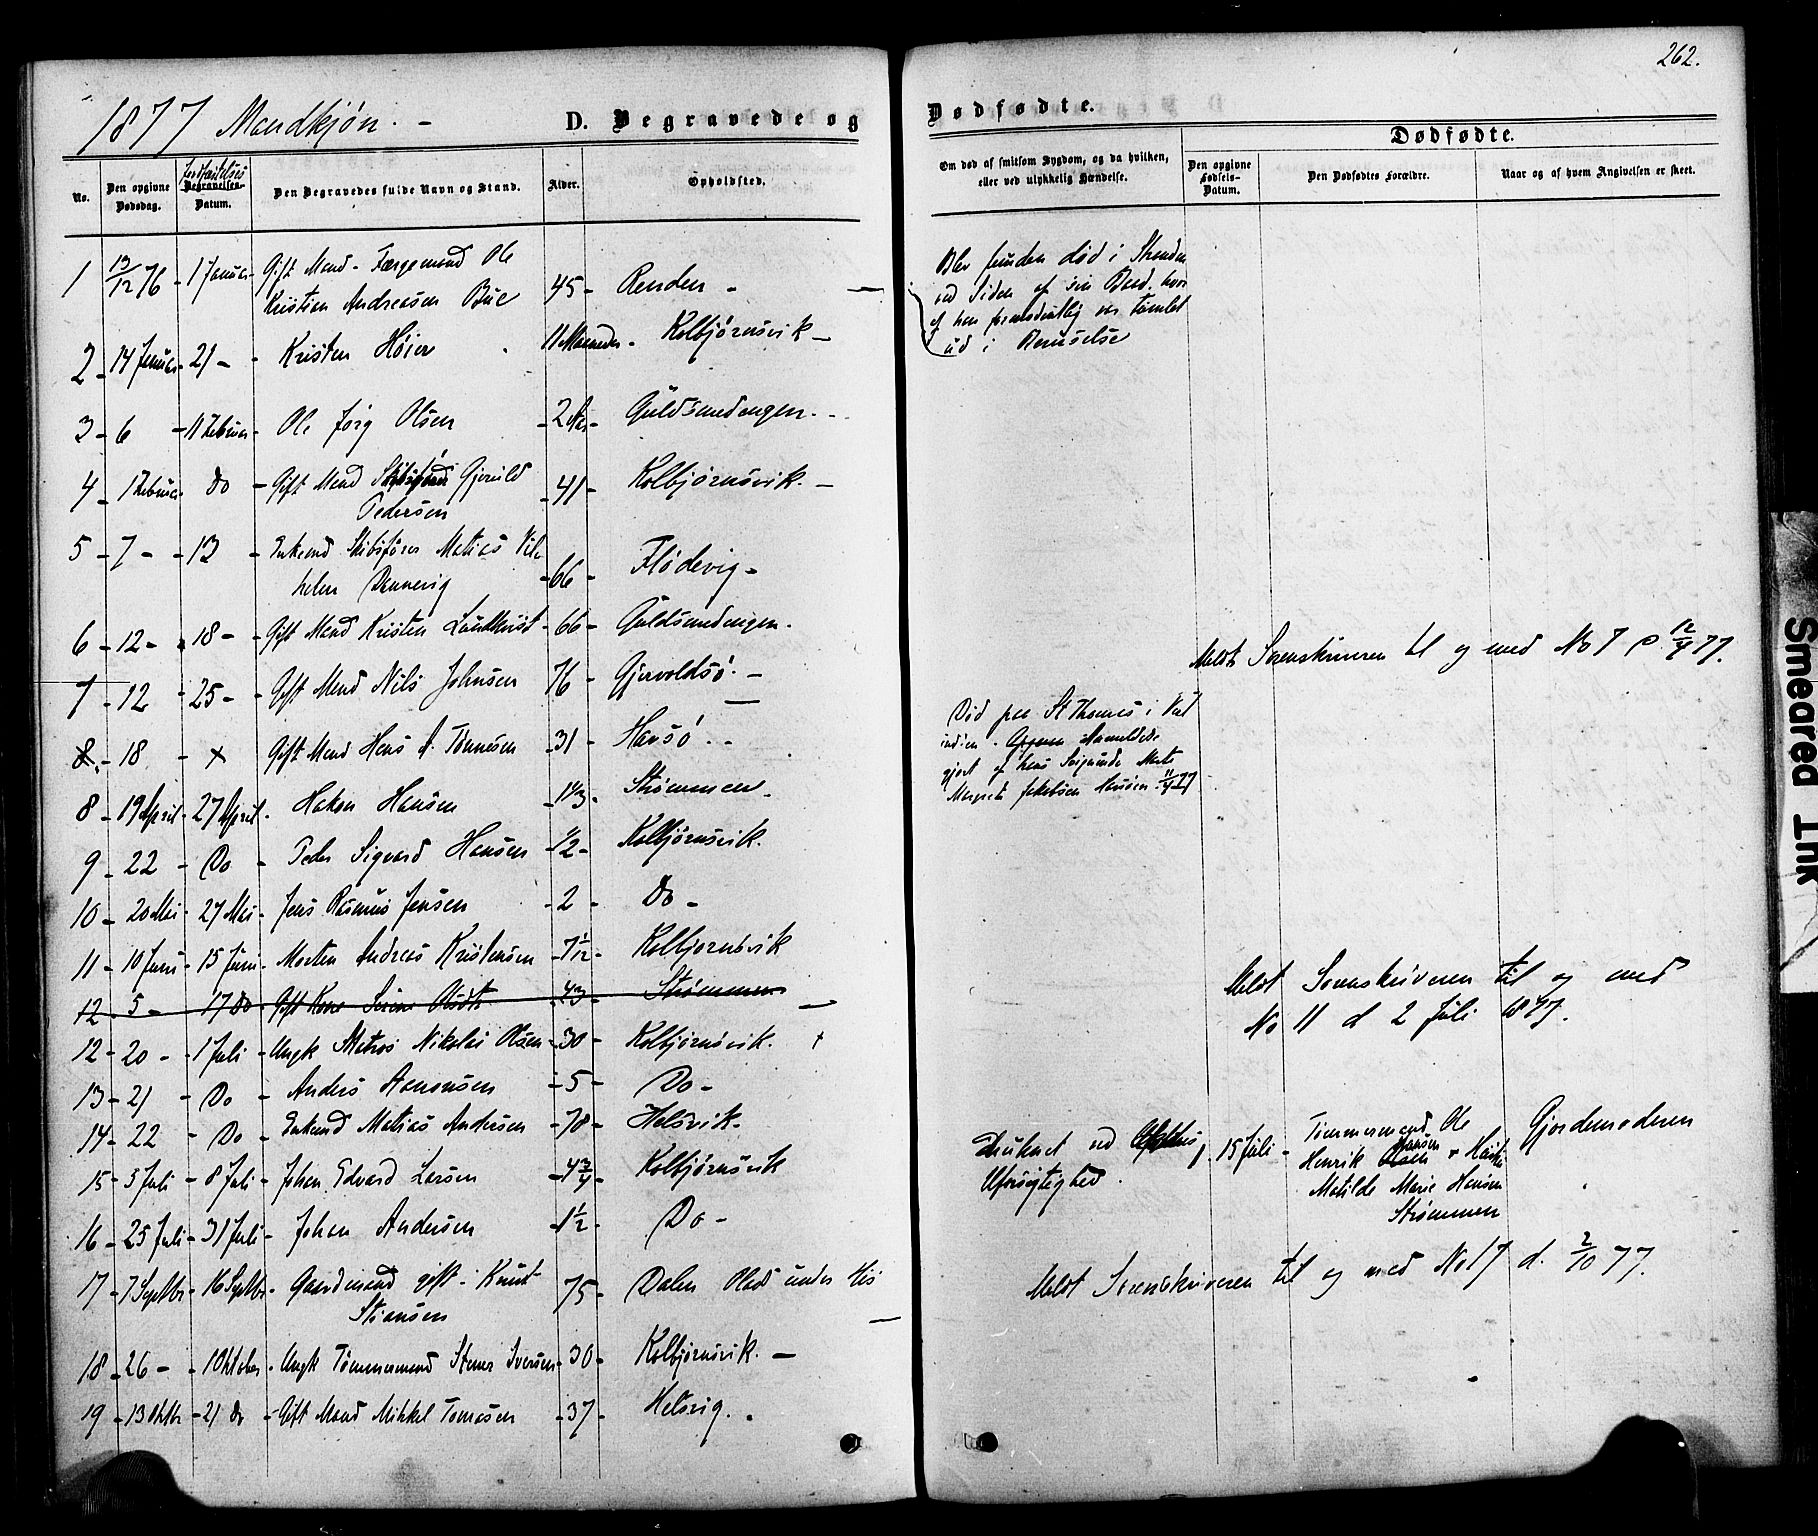 262.
1877 Mandkjøn. -
D. Begravede og Dødfødte.
Dødfødte.
No.
Den opgivne Dødsdag.
Jordfæstelses
Begravelses-Datum.
Den Begravedes fulde Navn og Stand.
Alder.
Opholdsted.
Om død af smitsom Sygdom, og da hvilken, eller ved ulykkelig Hændelse.
Den opgivne Fødsels-Datum.
Den Dødfødtes Forældre.
Naar og af hvem Angivelsen er skeet.
1 13/12 76 - 1 Januar - Gift Mand - Færgemand Ole
Kristian Andreasen Bue 45 - Renden -
Blev funden død i Stranden
ved Siden af sin Baad, hvor
af han formodentlig er tumlet
ud i Beruselse
2 - 14 Januar - 21 - Kristen Høier 11 Maaneder - Kolbjørnsvik -
3 - 6 - 11 Februar - Ole Jørg Olsen - 2 Aar - Guldsmedengen. -
4 - 1 Februar - Do - Gift Mand Gjeruld
Pedersen - 41 - Kolbjørnsvik. -
5 - 7 - - 13 - Enkemd Skibsfører Matias Vil-
helm Dannevig - 66 - Flødevig -
6 - 12 - 18 - Gift Mand Kristen Lundkvist - 66 - Guldsmedengen.
7 - 12 - 25 - Gift Mand Nils Johnsen 76 - Gjervoldsø. -
Meldt Sorenskriveren til og med No 7 d 12/4 77.
8. - 18 - x Gift Mand Hans A. Tønnesen - 31 - Havsø. -
Død paa St Thomas i Vest
indien. Anmeldelse
gjort af hans Svigerinde
Margrete Jakobsen Havsøen 11/4 77
8 - 19 April - 27 April - Hakon Hansen - 1 1/3 - Strømmen.
9 - 22 - Do - Peder Sigvard Hansen - 1/2 - Kolbjørnsvik.
10 - 20 Mai - 27 Mai - Jens Rasmus Jensen - 2 - Do -
11 - 10 Juni - 15 Juni - Morten Andreas Kristensen - 7 1/2 - Kolbjørnsvik
12 - 5 - 17 Do - Gift Kone - 43 - Strømmen
Meldt Sorenskriveren til og med
No 11 d 2 Juli 1877.
12 - 20 - 1 Juli - Ungk Matros Nikolai Olsen - 30 - Kolbjørnsvik. +
13 - 21 - Do - Anders Aanonsen - 5 - Do -
14 - 22 - Do - Enkemd Matias Andersen - 78 - Helsvik.
15 - 3 Juli - 8 Juli - Johan Edvard Larsen - 4 3/4 - Kolbjørnsvik
Druknet ved
Uforsigtighed.
1. 15 Juli - Tømmermand Ole
Henrik Hansen +
Matilde Marie Hansen
Strømmen
Gjordemoderen
16 - 25 Juli - 31 Juli - Johan Andersen - 1 1/2 - Do -
17 - 7 Septbr - 16 Septbr - Gaardmand gift - Knut
Stiansen 75 - Dalen Olad under His
Meldt Sorenskriveren til og med No 17 d. 2/10 77.
18 - 26 - 1 Oktober - Ungk Tømmermand Iversen - 30 - Kolbjørnsvik. -
19 - 13 Oktbr - 21 Do - Gift Mand Mikkel Tomasen - 37 - Helsvig.
Smeared Ink